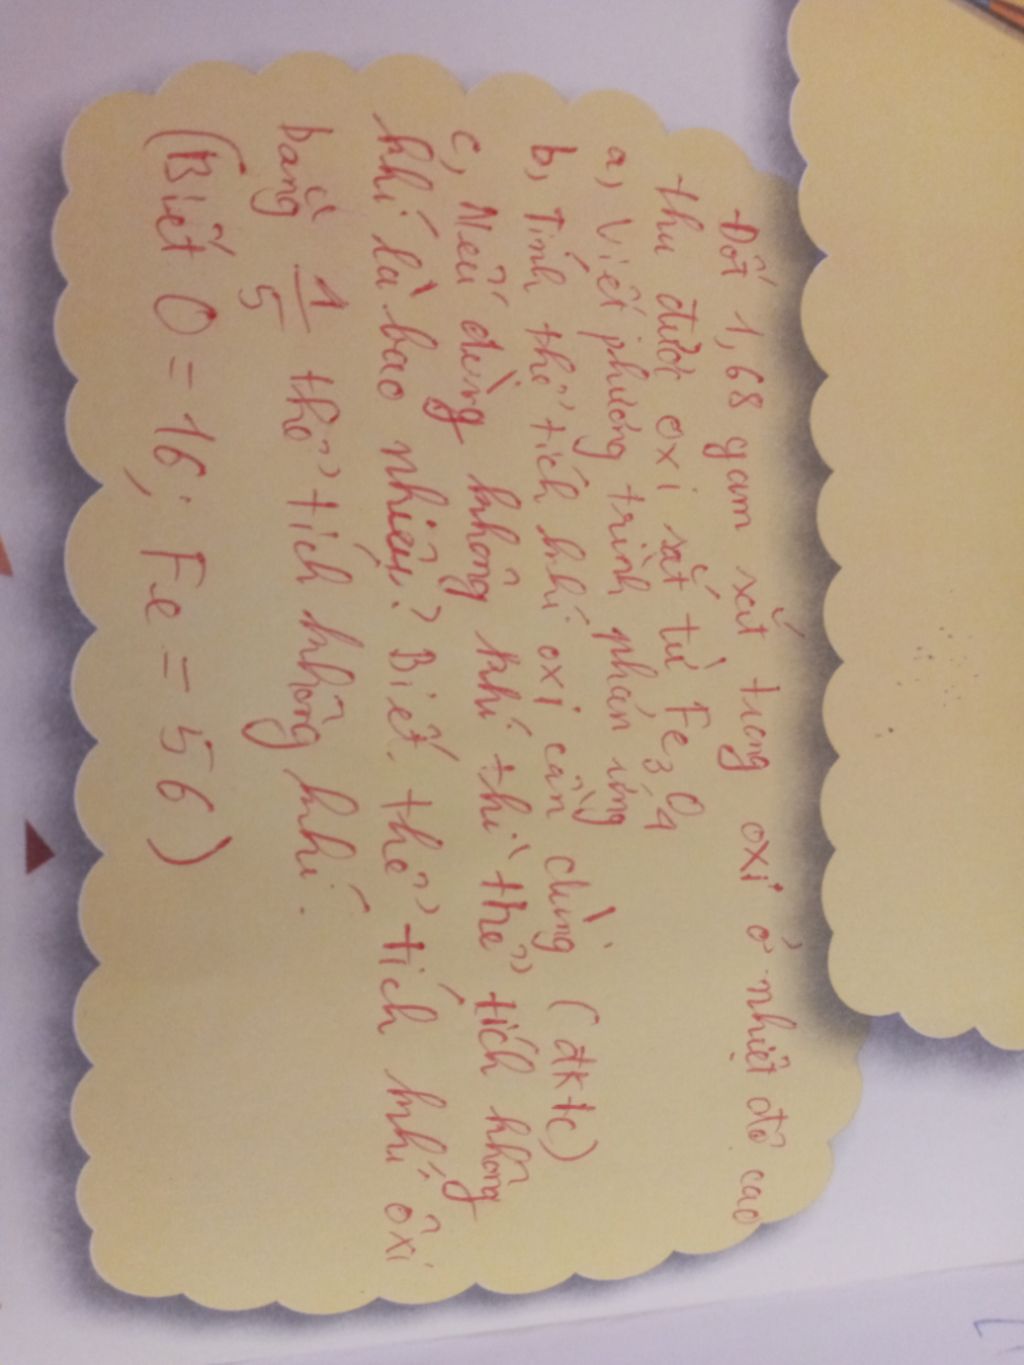 Đốt 1,68 gam sắt trong oxi ở nhiệt độ cao
thu được oxi sắt từ Fe3O4
a, Viết phương trình phản ứng
b, Tính thể tích khí oxi cần dùng (đktc)
c, Nếu dùng không khí thì thể tích không
khí là bao nhiêu? Biết thể tích khí ôxi
bằng 1/5 thể tích không khí.
(Biết O = 16; Fe = 56)